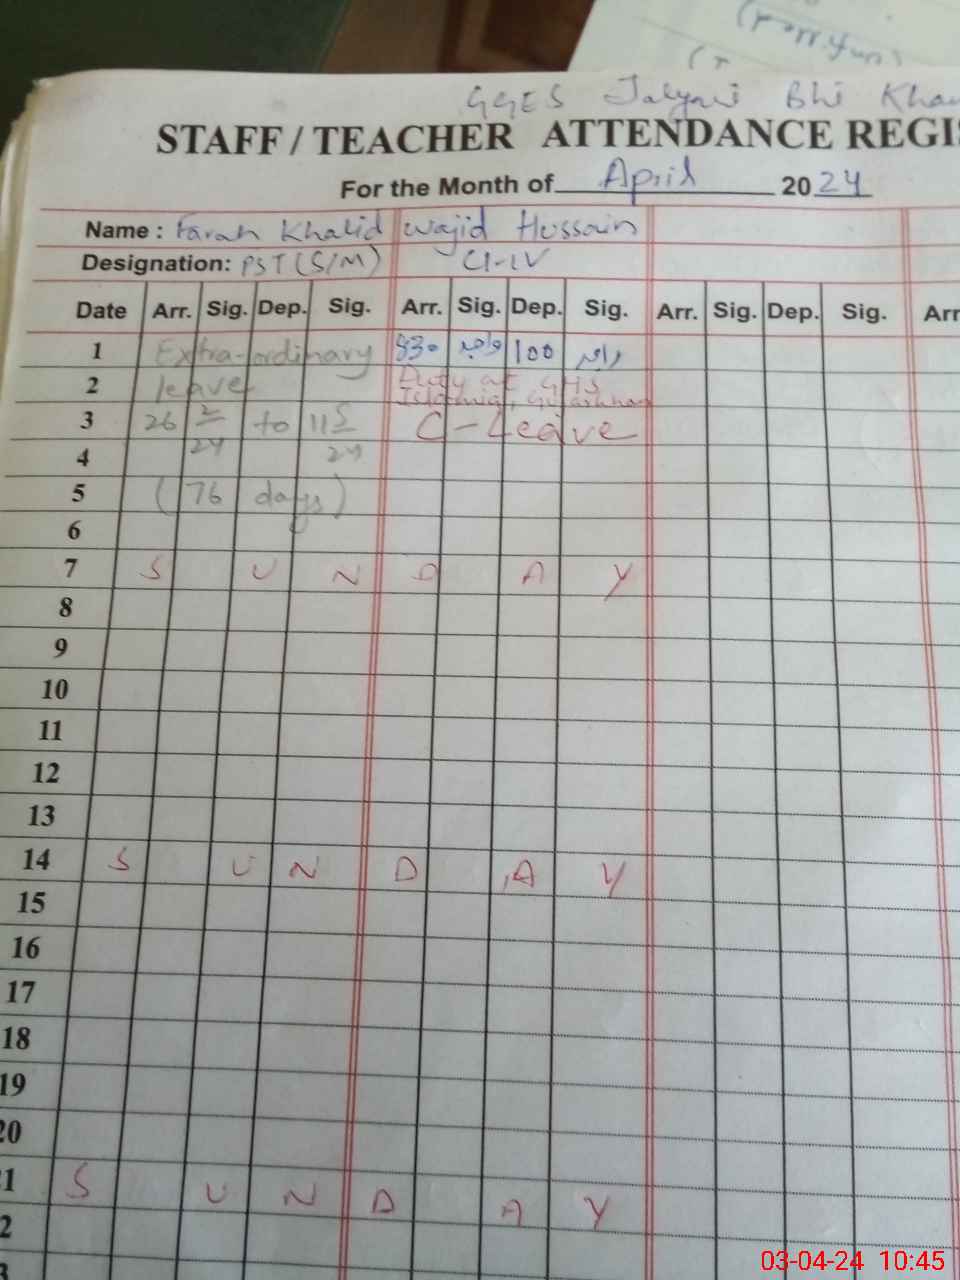 GGES Jalyari Bhi Khan
STAFF / TEACHER ATTENDANCE REGIS
For the Month of April 2024
Name : Farah Khalid Wajid Hussain
Designation: PST (S/M) Cl-IV
Date Arr. Sig. Dep. Sig. Arr. Sig. Dep. Sig. Arr. Sig. Dep. Sig. Arr
1 Extra-ordinary 830 واجد 100 واجد
2 leave Duty at GHS
Islamia, Gujarkhan
3 26 2/24 to 11 5/24 C-Leave
4
5 (76 days)
6
7 S U N D A Y
8
9
10
11
12
13
14 S U N D A Y
15
16
17
18
19
20
1 S U N D A Y
2
3
03-04-24 10:45